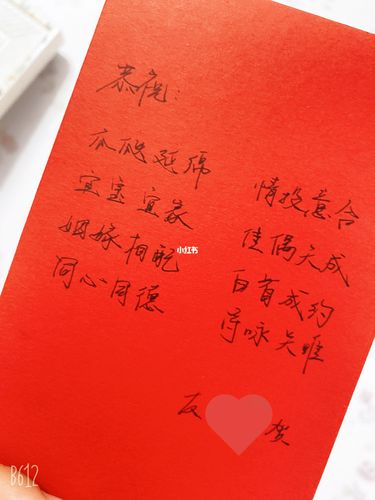 恭祝：
瓜瓞延绵
宜室宜家
姻嫁相配
同心同德
情投意合
佳偶天成
白首成约
诗咏关雎
友 贺
小红书
B612